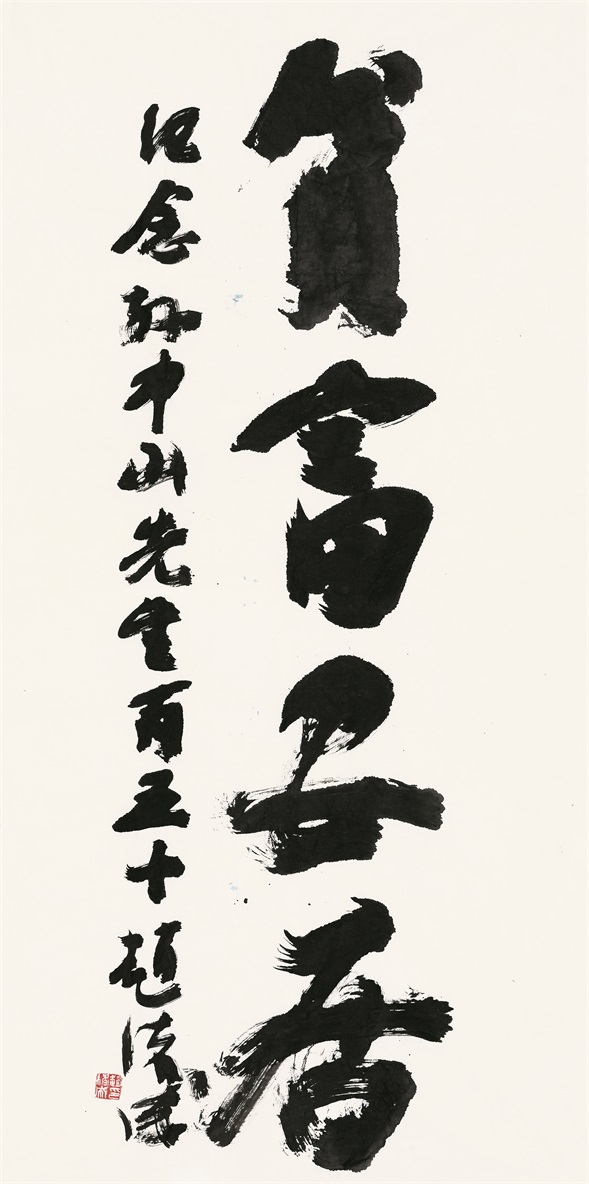 貧富安居
紀念孫中山先生百五十趙